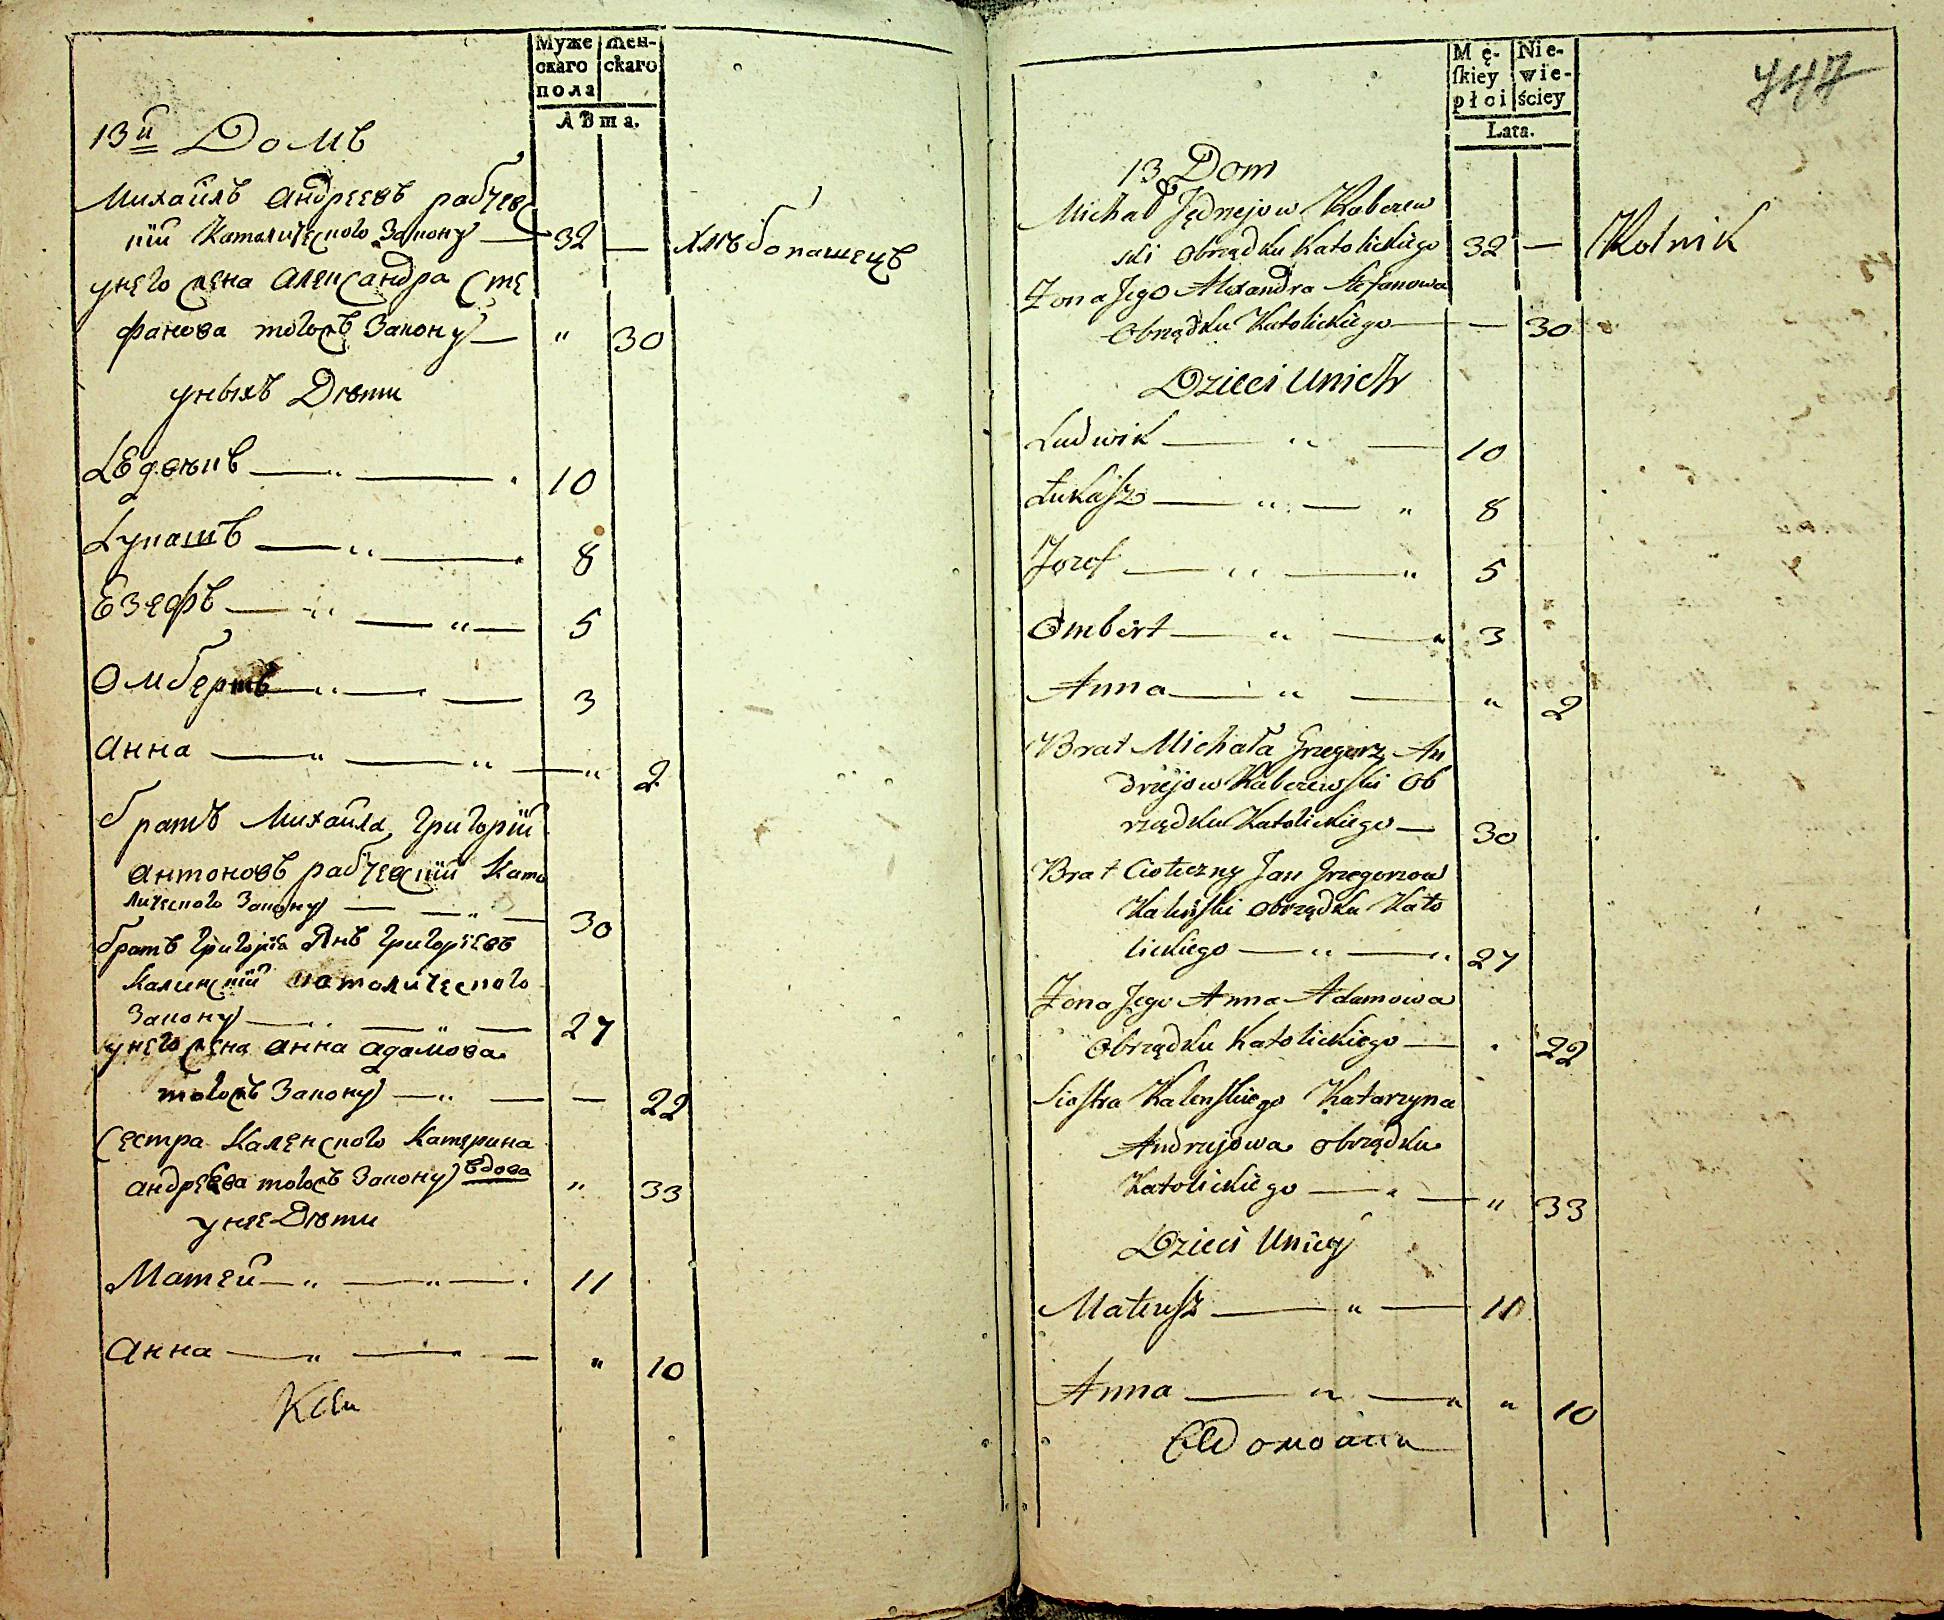 Муже
скаго
пола
жен-
скаго
лѣта.
13й Домъ
Михайлъ Андреевъ рабчев
скій Католического Закону — 32 — хлѣбопашецъ
унего жена Александра Сте
фанова тогожъ Закону — " 30
уныхъ Дѣти
Лукашъ — " — 8
Езефъ — " — " — 5
Омбертъ — " — 3
Анна — " — " — " 2
братъ Михайла Григорій
Антоновъ рабчевскій Като
лического Закону — " — 30
братъ Григорія Янъ Григоріевъ
Калинскій католического
Закону — " — " — 27
унего жена Анна Адамова
тогожъ Закону — " — — 22
Сестра Каленского Катерина
Андреева тогожъ Закону вдова " 33
унее Дѣти
Матей — " — " — 11
Анна — " — " 10
747
Mę-
skiey
płci
Nie-
wie-
ściey
Lata.
13 Dom
Michał Jędrzejow Rabczew
ski obrządku Katolickiego 32 — Rolnik
Żona Jego Alexandra Stefanowa
Obrządku Katolickiego — — 30
Dzieci Unich
Ludwik — " — 10
Łukasz — " — " 8
Jozef — " — " 5
Ombert — " — " 3
Anna — " — " 2
Brat Michała Grzegorz An
drzejow Rabczewski Ob
rządku Katolickiego — 30
Brat Cioteczny Jan Grzegorzow
Kaleński obrządku Kato
lickiego — " — " 27
Żona Jego Anna Adamowa
Obrządku Katolickiego — " 22
Siostra Kalenskiego Katarzyna
Andrzejowa obrządku
Katolickiego — " — " 33
Dzieci Uniey
Mateusz — " — 11
Anna — " — " " 10